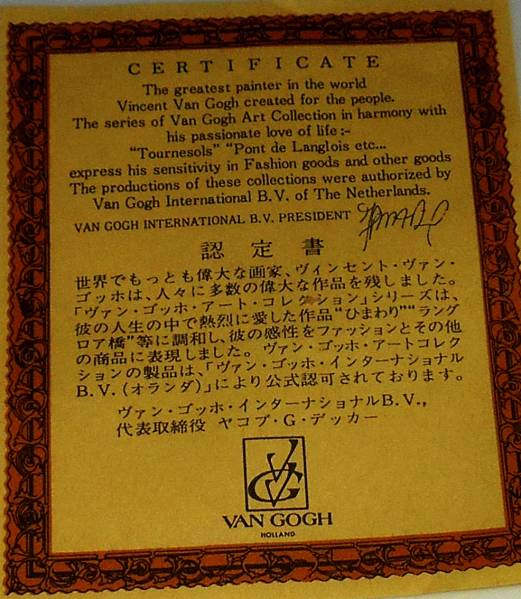 CERTIFICATE
The greatest painter in the world
Vincent Van Gogh created for the people.
The series of Van Gogh Art Collection in harmony with
his passionate love of life:-
"Tournesols" "Pont de Langlois etc...
express his sensitivity in Fashion goods and other goods
The productions of these collections were authorized by
Van Gogh International B.V. of The Netherlands.
VAN GOGH INTERNATIONAL B.V. PRESIDENT
認定書
世界でもっとも偉大な画家、ヴィンセント・ヴァン・
ゴッホは、人々に多数の偉大な作品を残しました。
「ヴァン・ゴッホ・アート・コレクション」シリーズは、
彼の人生の中で熱烈に愛した作品"ひまわり""ラング
ロア橋"等に調和し、彼の感性をファッションとその他
の商品に表現しました。ヴァン・ゴッホ・アートコレク
ションの製品は、「ヴァン・ゴッホ・インターナショナル
B.V.(オランダ)」により公式認可されております。
ヴァン・ゴッホ・インターナショナルB.V.,
代表取締役 ヤコブ・G・デッカー
VG
VAN GOGH
HOLLAND